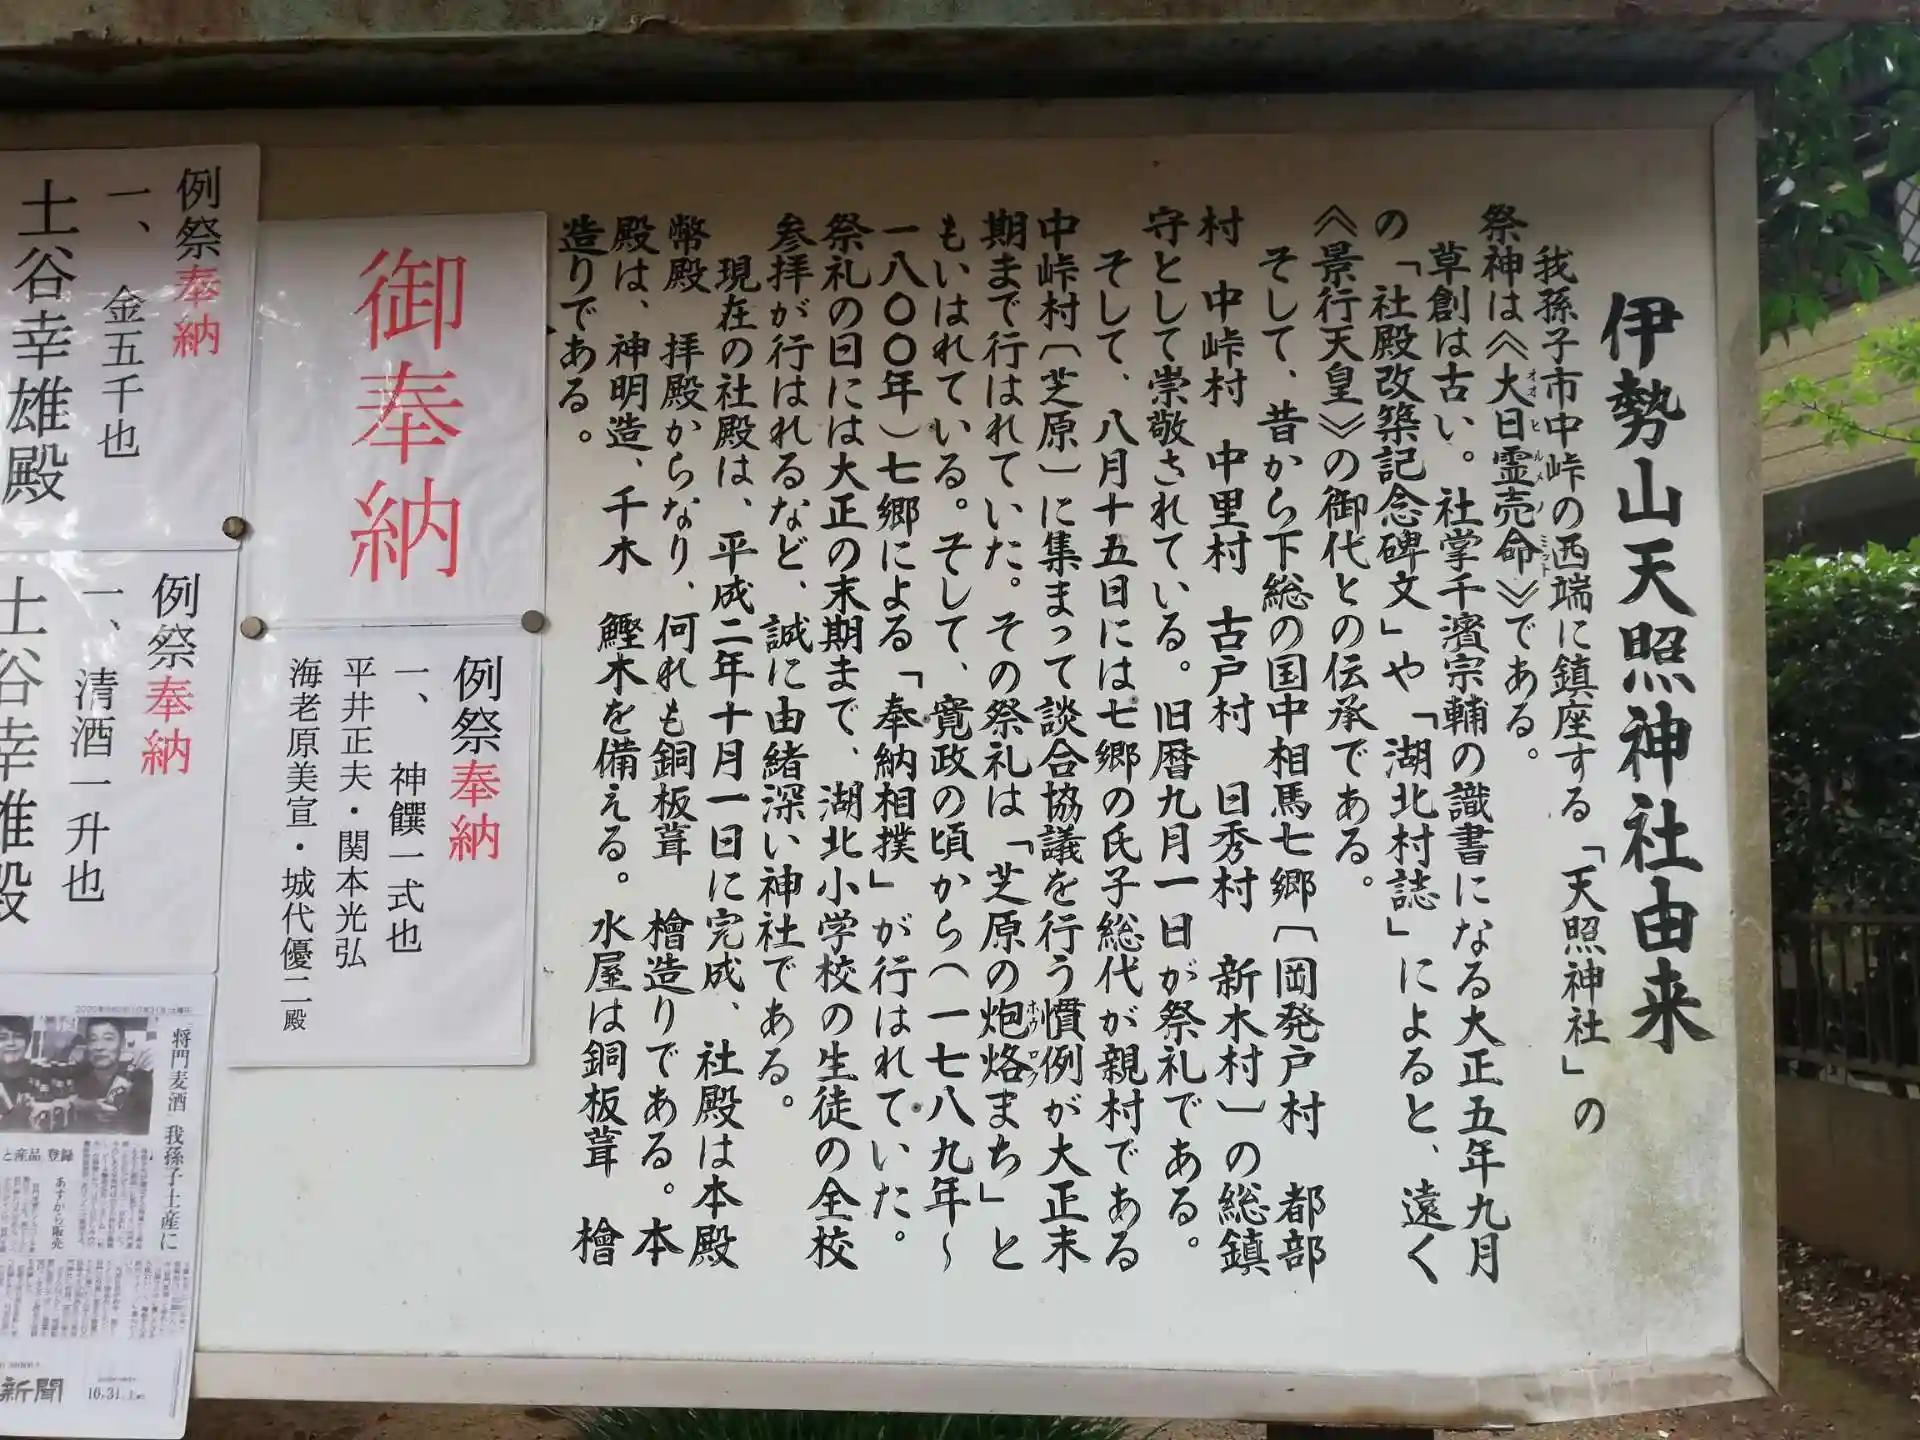 伊勢山天照神社由来
我孫子市中峠の西端に鎮座する「天照神社」の
祭神は《大日霊売命》である。
オオヒルメノミコト
草創は古い。社掌千濱宗輔の識書になる大正五年九月
の「社殿改築記念碑文」や「湖北村誌」によると、遠く
《景行天皇》の御代との伝承である。
そして、昔から下総の国中相馬七郷〔岡発戸村 都部
村 中峠村 中里村 古戸村 日秀村 新木村〕の総鎮
守として崇敬されている。旧暦九月一日が祭礼である。
そして、八月十五日には七郷の氏子総代が親村である
中峠村〔芝原〕に集まって談合協議を行う慣例が大正末
期まで行はれていた。その祭礼は「芝原の炮烙まち」と
ホウロク
もいはれている。そして、寛政の頃から(一七八九年~
一八〇〇年)七郷による「奉納相撲」が行はれていた。
祭礼の日には大正の末期まで、湖北小学校の生徒の全校
参拝が行はれるなど、誠に由緒深い神社である。
現在の社殿は、平成二年十月一日に完成、社殿は本殿
幣殿 拝殿からなり、何れも銅板葺 檜造りである。本
殿は、神明造、千木 鰹木を備える。水屋は銅板葺 檜
造りである。
御奉納
例祭奉納
一、神饌一式也
平井正夫・関本光弘
海老原美宣・城代優二殿
例祭奉納
一、金五千也
土谷幸雄殿
例祭奉納
一、清酒一升也
土谷幸雄殿
「将門麦酒」我孫子土産に
と産品 登録
あすから販売
新聞
10.31